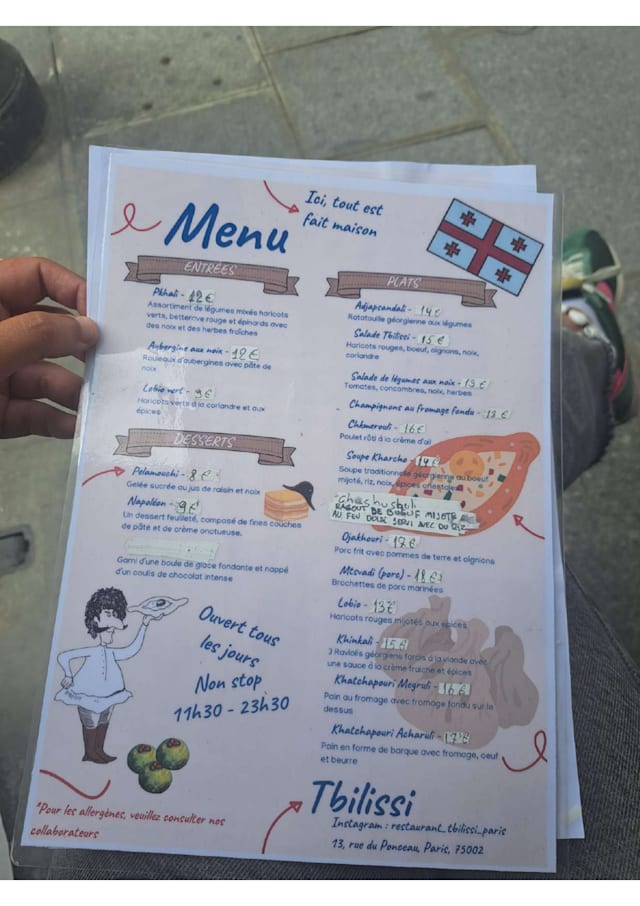 Menu
Ici, tout est
fait maison
ENTRÉES
Pkhali - 12€
Assortiment de légumes mixés haricots
verts, betterave rouge et épinards avec
des noix et des herbes fraîches
Aubergine aux noix - 12€
Rouleaux d'aubergines avec pâte de
noix
Lobio vert - 9€
Haricots verts à la coriandre et aux
épices
DESSERTS
Pelamouchi - 8€
Gelée sucrée au jus de raisin et noix
Napoléon - 9€
Un dessert feuilleté, composé de fines couches
de pâte et de crème onctueuse.
Garni d'une boule de glace fondante et nappé
d'un coulis de chocolat intense
Ouvert tous
les jours
Non stop
11h30 - 23h30
*Pour les allergènes, veuillez consulter nos
collaborateurs
PLATS
Adjapsandali - 14€
Ratatouille géorgienne aux légumes
Salade Tbilissi - 15€
Haricots rouges, boeuf, oignons, noix,
coriandre
Salade de légumes aux noix - 13€
Tomates, concombres, noix, herbes
Champignons au fromage fondu - 13€
Chkmerouli - 16€
Poulet rôti à la crème d'ail
Soupe Kharcho - 14€
Soupe traditionnelle géorgienne au boeuf
mijoté, riz, noix, épices orientales
Chashushuli
RAGOUT DE BOEUF MIJOTÉ
AU FEU DOUX SERVI AVEC DU RIZ
Ojakhouri - 17€
Porc frit avec pommes de terre et oignons
Mtsvadi (porc) - 18€
Brochettes de porc marinées
Lobio - 13€
Haricots rouges mijotés aux épices
Khinkali - 15€
3 Raviolis géorgiens farcis à la viande avec
une sauce à la crème fraiche et épices
Khatchapouri Megruli - 16€
Pain au fromage avec fromage fondu sur le
dessus
Khatchapouri Acharuli - 17€
Pain en forme de barque avec fromage, oeuf
et beurre
Tbilissi
Instagram : restaurant_tbilissi_paris
13, rue du Ponceau, Paris, 75002